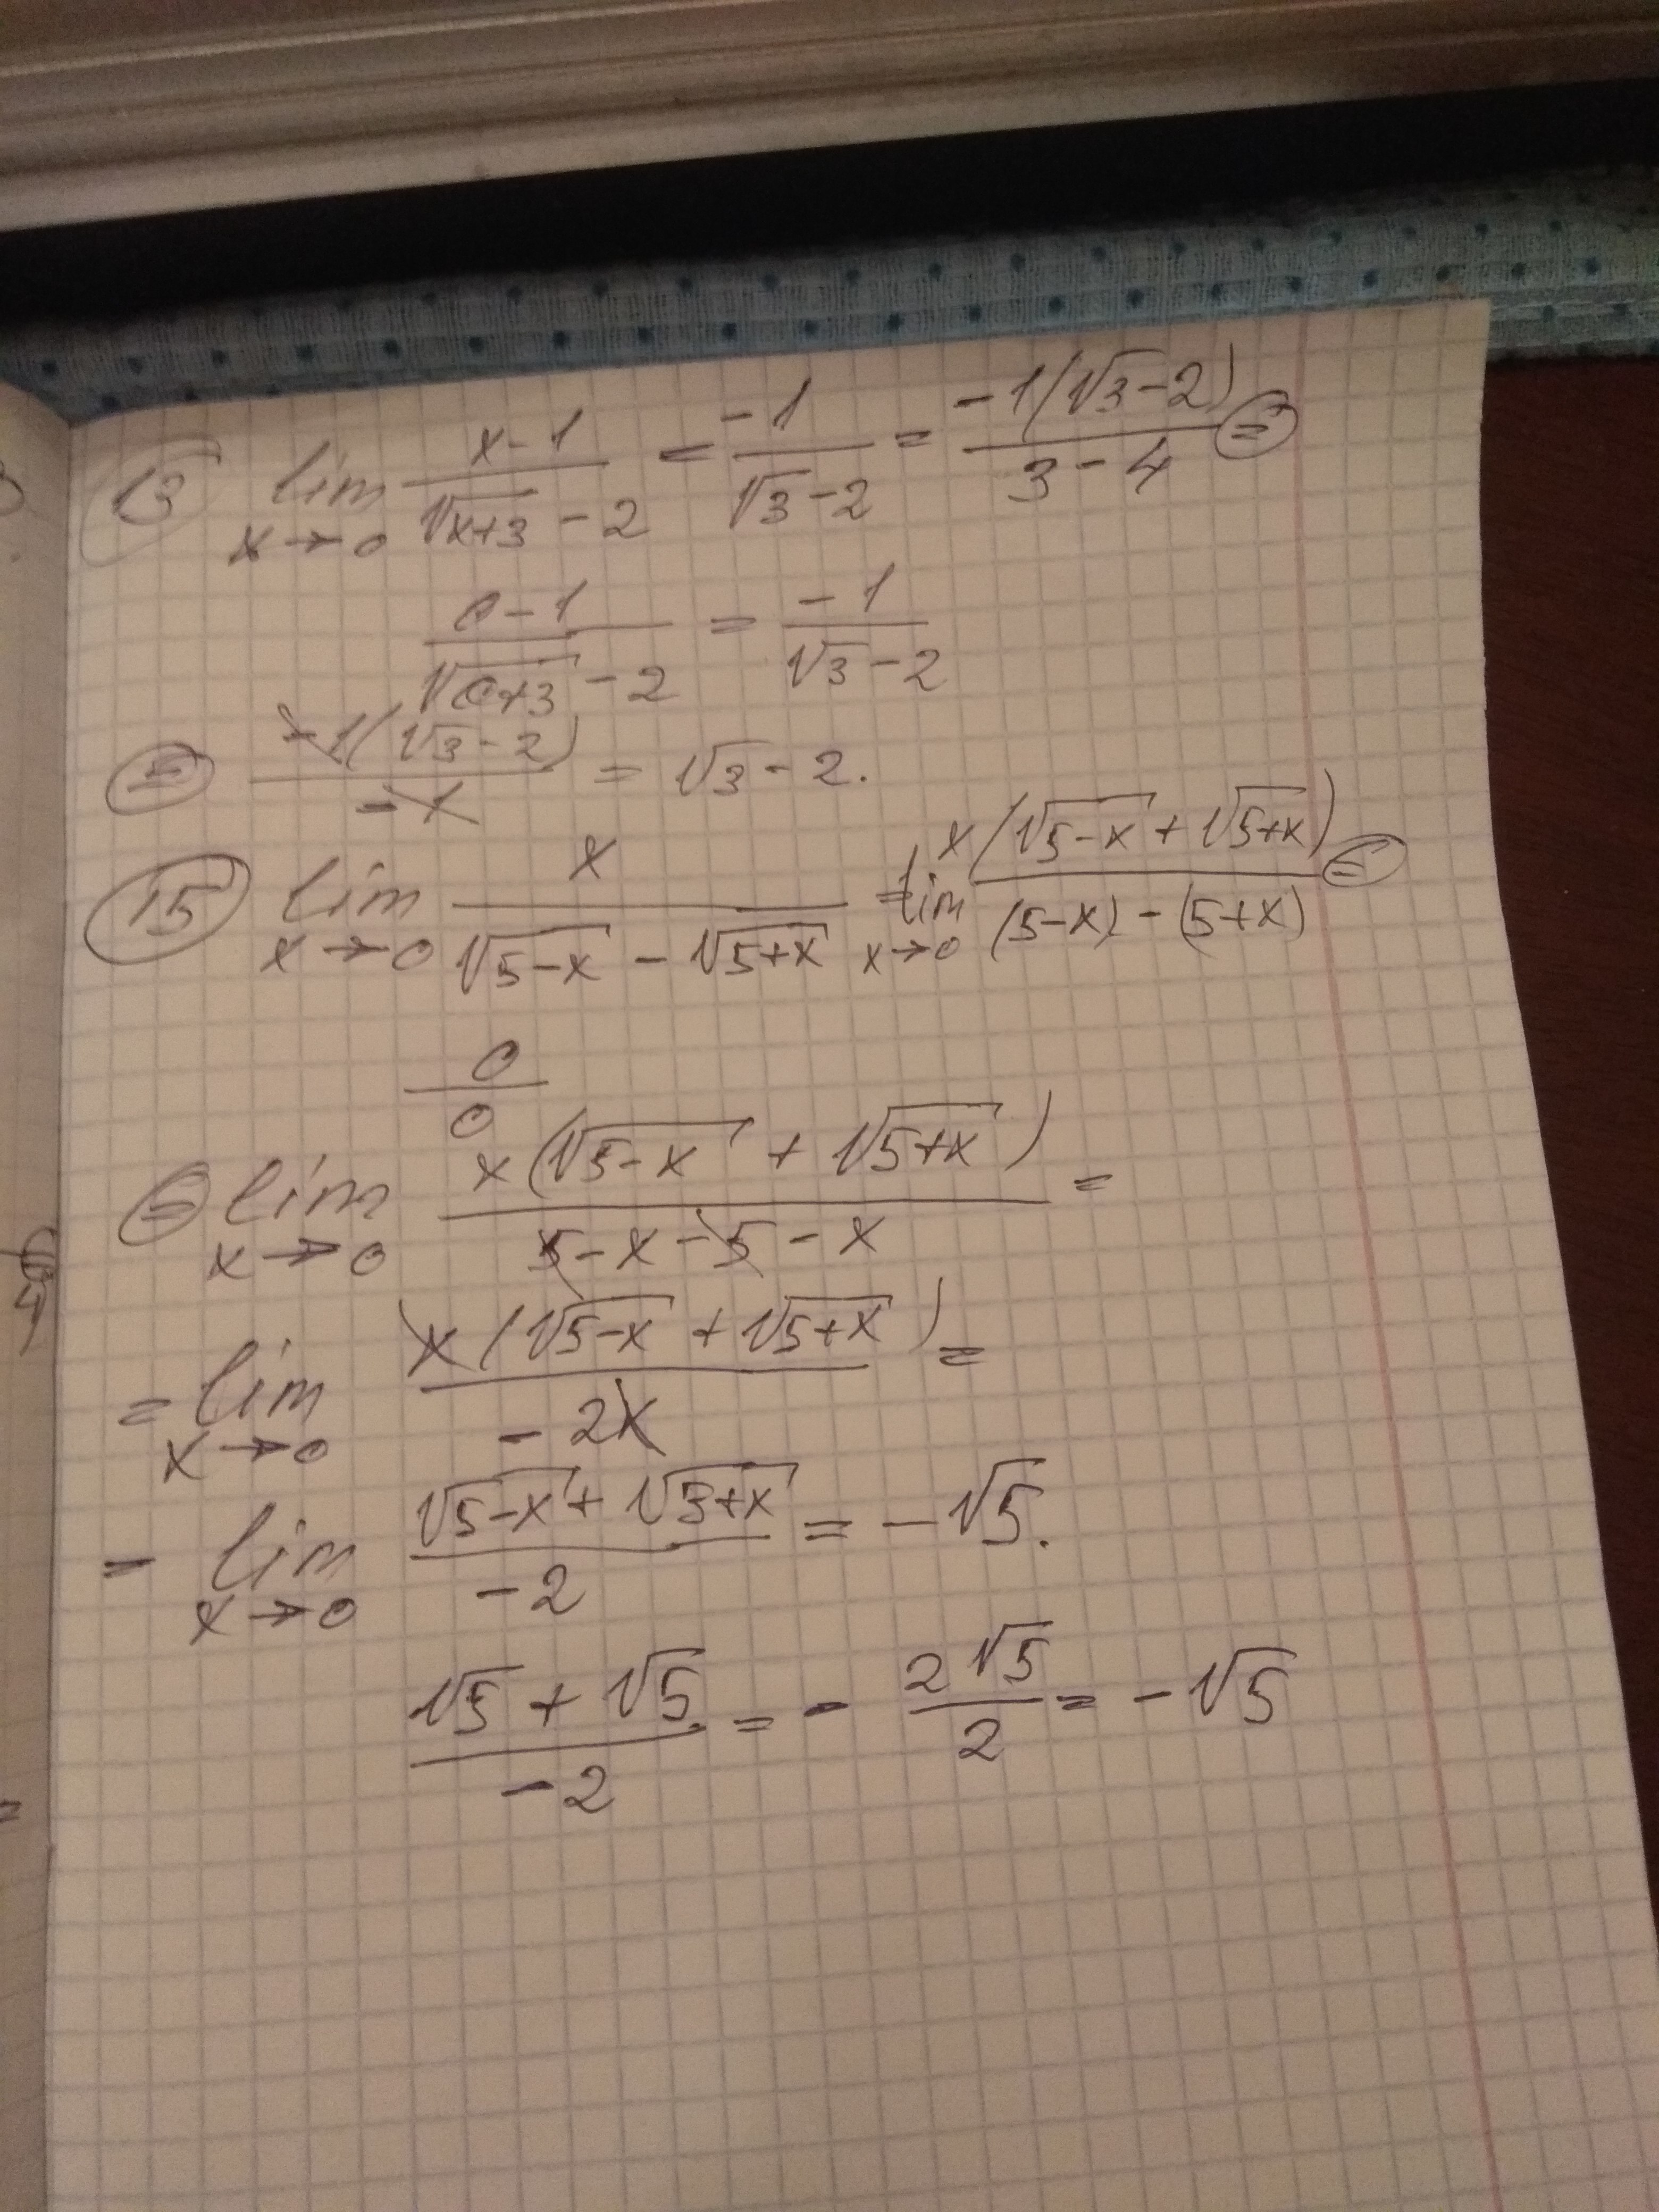 13 lim x→0 (x-1)/(√(x+3) - 2) = -1/(√3 - 2) = -1(√3 - 2)/(3 - 4) =
(0-1)/(√(0+3) - 2) = -1/(√3 - 2)
= -1(√3 - 2)/-1 = √3 - 2.
15 lim x→0 x/(√(5-x) - √(5+x)) = lim x→0 x(√(5-x) + √(5+x))/((5-x) - (5+x)) =
0/0
= lim x→0 x(√(5-x) + √(5+x))/(5 - x - 5 - x) =
= lim x→0 x(√(5-x) + √(5+x))/-2x =
- lim x→0 (√(5-x) + √(5+x))/-2 = -√5.
(√5 + √5)/-2 = - 2√5/2 = -√5